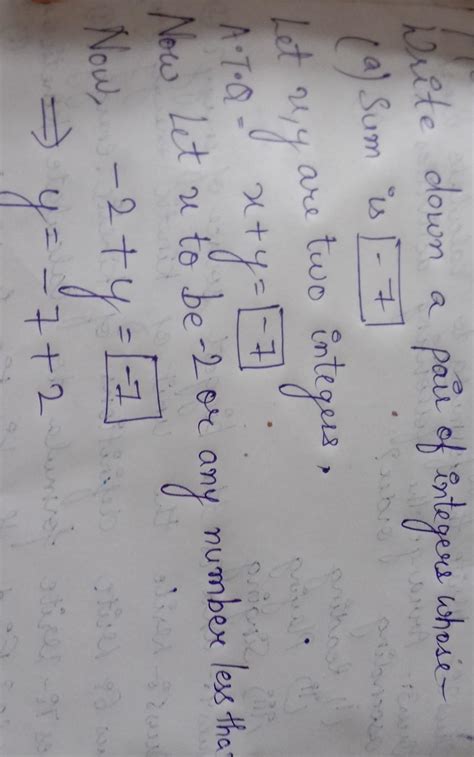 Write down a pair of integers whose-
(a) Sum is -7
Let x, y are two integers,
A.T.Q = x+y = -7
Now Let x to be -2 or any number less tha
Now, -2+y = -7
⇒ y = -7+2